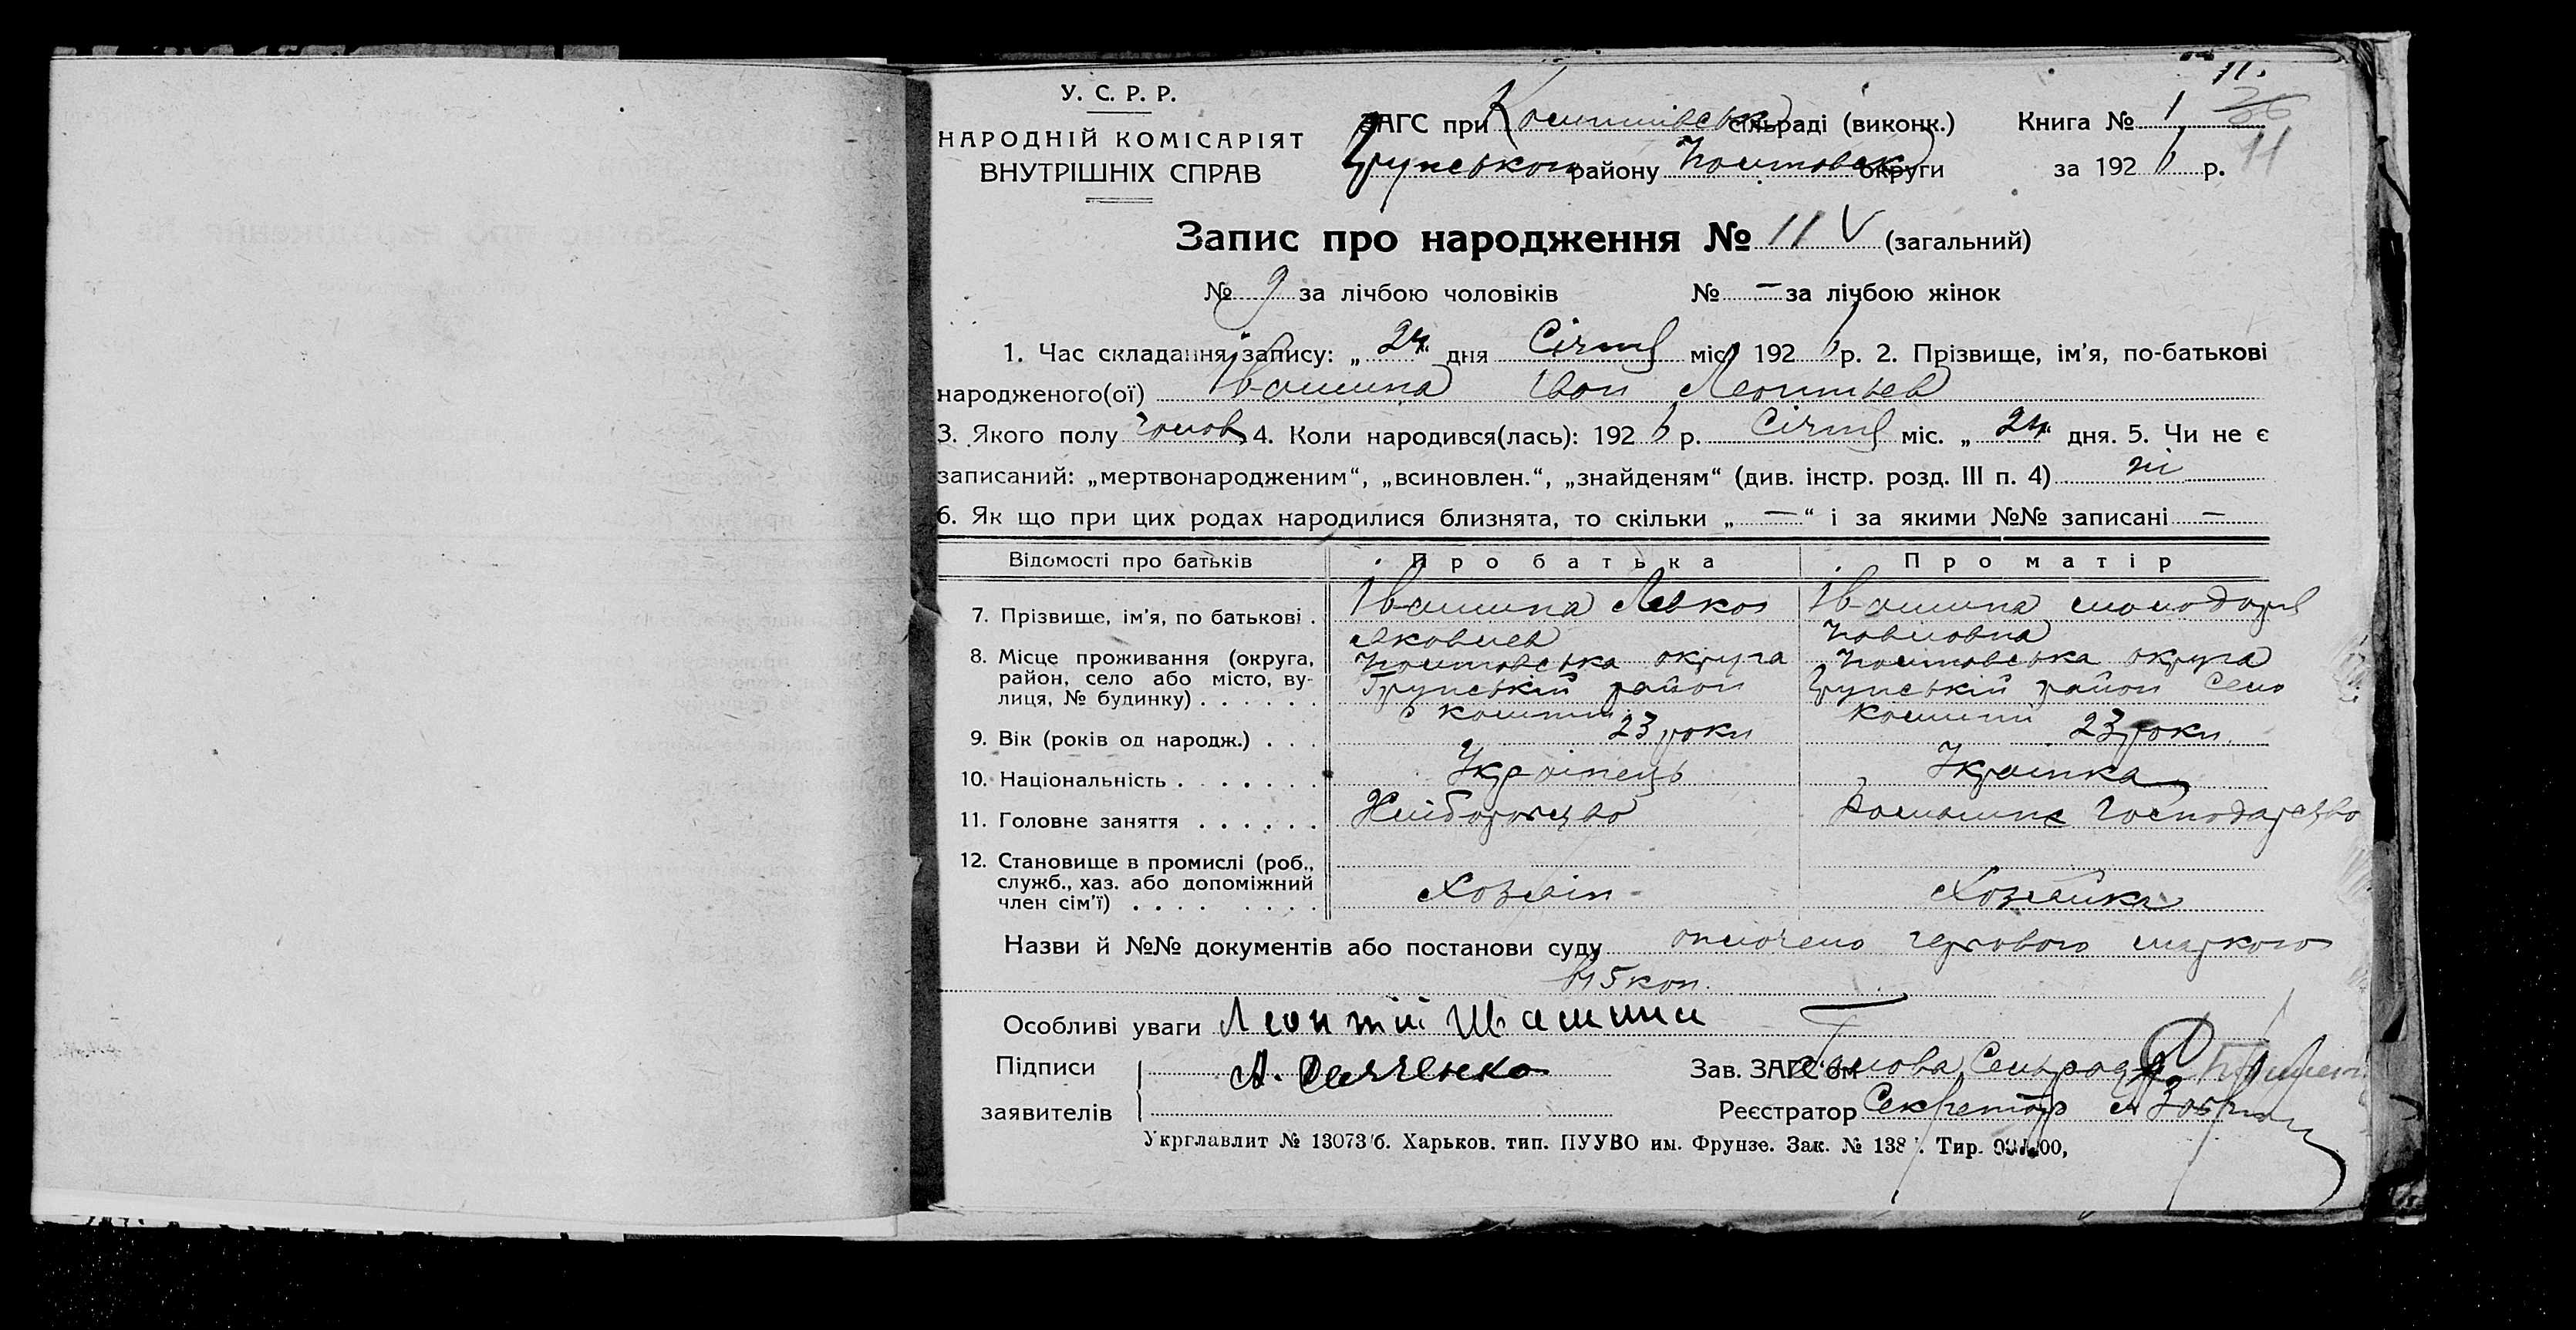 11.
У. С. Р. Р.
НАРОДНІЙ КОМІСАРІЯТ
ВНУТРІШНІХ СПРАВ
ЗАГС при сільраді (виконк.)
Грунського району Полтовськ округи
Книга № 1 36
за 1926 р. 11
Запис про народження № 11 V (загальний)
№ 9 за лічбою чоловіків № — за лічбою жінок
1. Час складання запису: „ 24 “ дня Січня міс. 1926 р. 2. Прізвище, ім’я, по-батькові
народженого(ої) Івашина Іван Леонтьев
3. Якого полу чолов 4. Коли народився(лась): 1926 р. Січня міс. „ 24 “ дня. 5. Чи не є
записаний: „мертвонародженим“, „всиновлен.“, „знайденям“ (див. інстр. розд. III п. 4) ні
6. Як що при цих родах народилися близнята, то скільки „ — “ і за якими №№ записані —
Відомості про батьків Про батька Про матір
7. Прізвище, ім’я, по батькові . Івашина Левко Яковлев Івашина Павловна
8. Місце проживання (округа, район, село або місто, вулиця, № будинку) . . . . . . Полтовська округа Грунський район с Полтовська округа Грунський район Село
9. Вік (років од народж.) . . . 23 роки 23 роки
10. Національність . . . . . . . Українець Українка
11. Головне заняття . . . . . . Хліборобство Домашнє Господарство
12. Становище в промислі (роб., служб., хаз. або допоміжний член сім’ї) . . . . . . . . . Хозяін Хозяйка
Назви й №№ документів або постанови суду оплочено гербового маркою
15 коп.
Особливі уваги Леонтій Івашина
Підписи
заявителів
Зав. ЗАГС’ом Голова Сельради
Реєстратор Секретар
Укрглавлит № 13073/б. Харьков. тип. ПУУВО им. Фрунзе. Зак. № 138 . Тир.